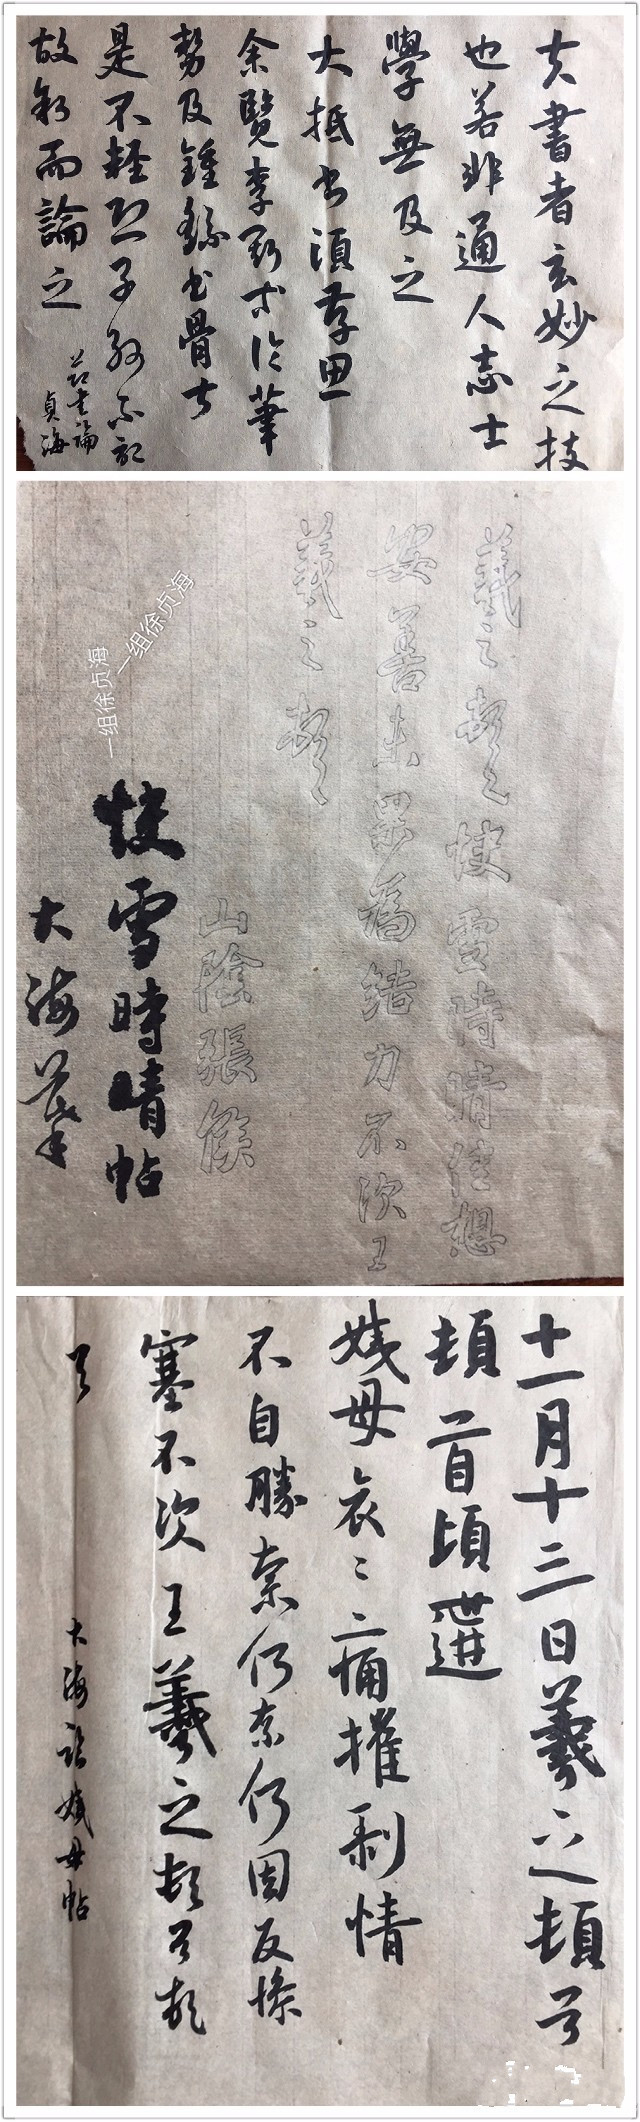 夫書者玄妙之技
也若非通人志士
學無及之
大抵書須存思
余覽李斯等論筆
勢及鍾繇書骨甚
是不輕恐子孫不記
故叙而論之
書論
貞海
羲之頓首快雪時晴佳想
安善未果為結力不次王
羲之頓首
山陰張侯
快雪時晴帖
大海摹
一组徐贞海
一组徐贞海
十一月十三日羲之頓首
頓首頃遘
姨母哀々痛摧剥情
不自勝奈何奈何因反慘
塞不次王羲之頓首頓
首
大海臨姨母帖